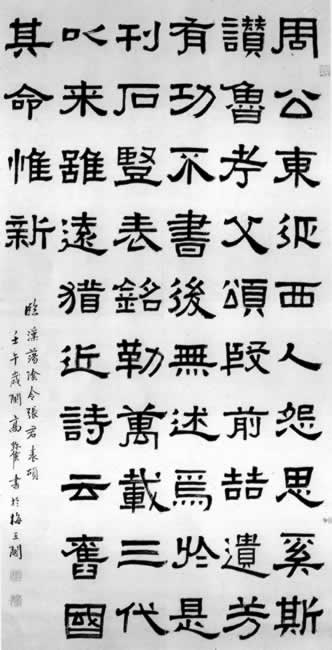 周公東征西人怨思奚斯
讚魯考父頌殷前喆遺芳
有功不書後無述焉於是
刊石豎表銘勒萬載三代
以来雖遠猶近詩云舊國
其命惟新
臨漢蕩陰令張君表頌
壬午歲高書於梅閣